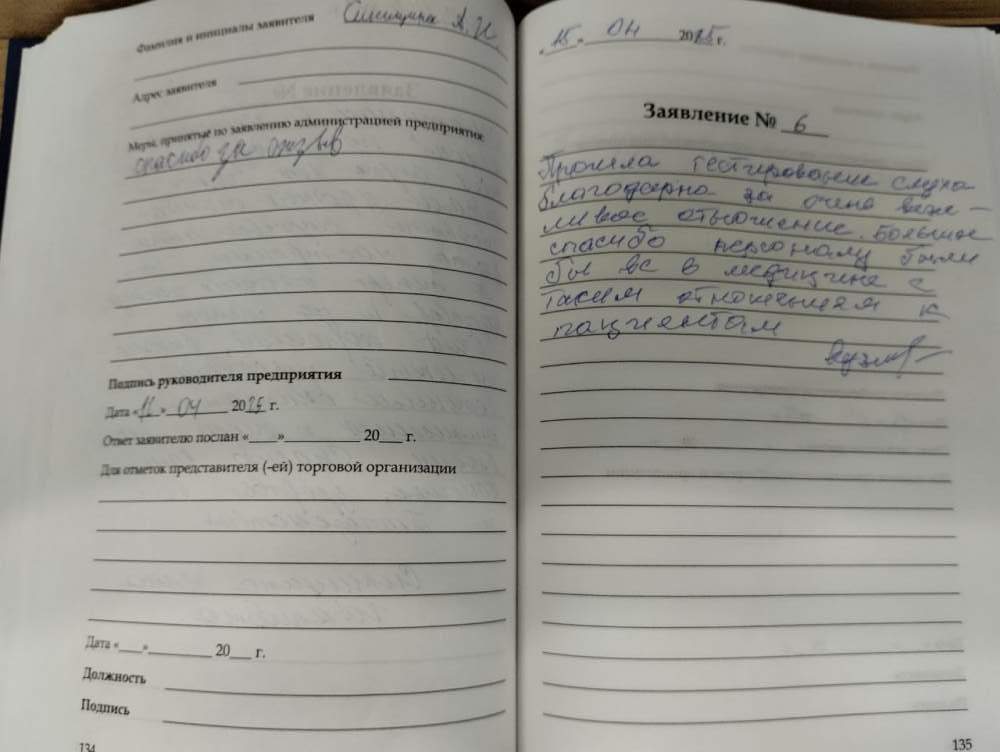 Фамилия и инициалы заявителя А. И.
Адрес заявителя
Меры, принятые по заявлению администрацией предприятия:
спасибо за отзыв
Подпись руководителя предприятия
Дата « » 04 2025 г.
Ответ заявителю послан «___»__________ 20___ г.
Для отметок представителя (-ей) торговой организации
Дата «___»__________ 20___ г.
Должность
Подпись
134
15. 04 2025 г.
Заявление № 6
Прошла тестирование слуха
благодарна за очень веж-
ливое отношение. Большое
спасибо персоналу были
бы все в медицине с
таким отношением к
пациентам
135